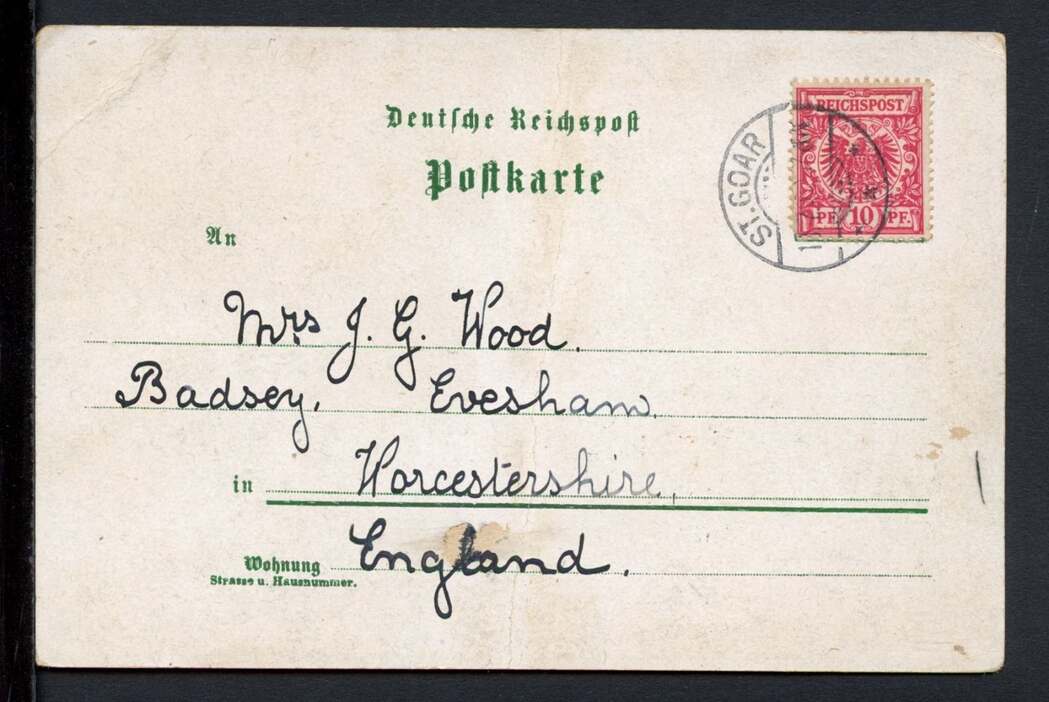 Deutsche Reichspost
Postkarte
REICHSPOST
PF. 10 PF.
ST. GOAR
An
Mrs J. G. Wood.
Badsey, Evesham,
in Worcestershire,
England.
Wohnung
Strasse u. Hausnummer.